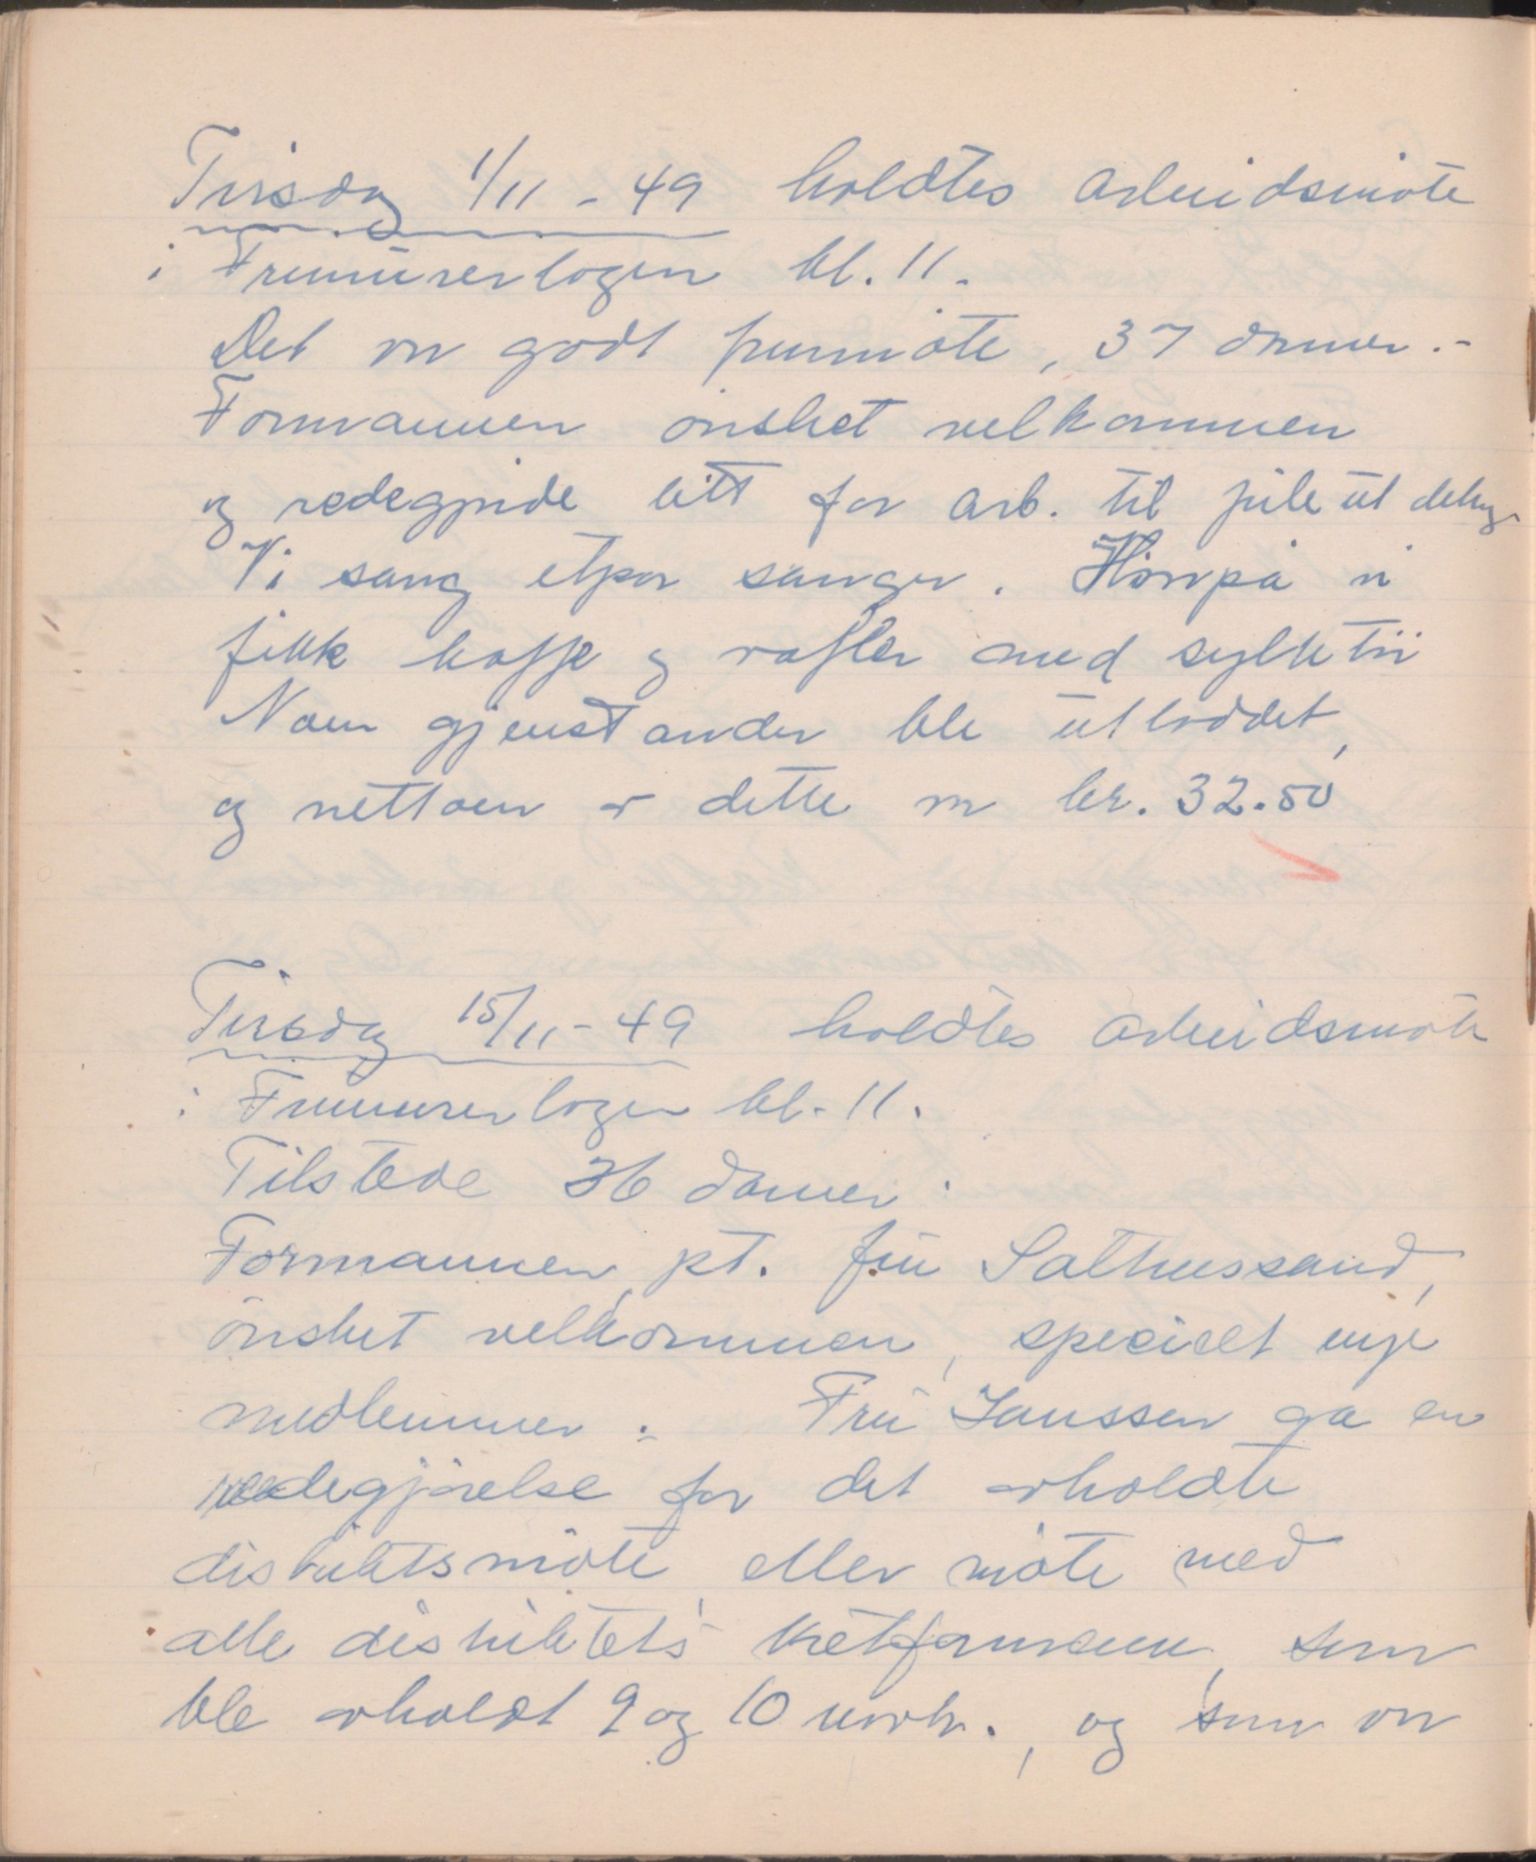 Tirsdag 1/11 - 49 holdtes arbeidsmøte
i Frimurerlogen kl. 11.
Det var godt fremmøte, 37 damer.-
Formannen ønsket velkommen
og redegjorde litt for arb. til jule utdeling
Vi sang etpar sanger. Hørpå vi
fikk kaffe og vafler med syltetøi
Noen gjenstander ble utloddet,
og nettoen av dette var kr. 32.50
Tirsdag 15/11 - 49 holdtes arbeidsmøte
i Frimurerlogen kl. 11.
Tilstede 36 damer.
Formannen, pt. fru Salhussand,
ønsket velkommen, specielt nye
medlemmer. Fru Janssen ga en
redegjørelse for det avholdte
distriktsmøte, eller møte med
alle distriktets kretsformenn, som
ble avholdt 9 og 10 novbr., og som var